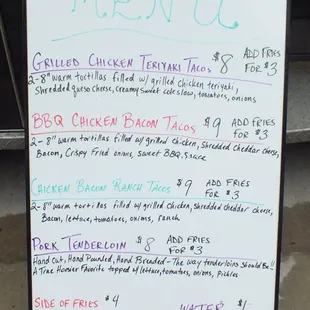 MENU
GRILLED CHICKEN TERIYAKI TACOS $8 ADD FRIES
FOR $3
2-8" warm tortillas filled w/ grilled chicken teriyaki,
Shredded queso cheese, creamy sweet coleslaw, tomatoes, onions
BBQ CHICKEN BACON TACOS $9 ADD FRIES
FOR $3
2-8" warm tortillas filled w/ grilled chicken, Shredded cheddar cheese,
Bacon, Crispy Fried onions, sweet BBQ sauce
CHICKEN BACON RANCH TACOS $9 ADD FRIES
FOR $3
2-8" warm tortillas filled w/ grilled chicken, Shredded cheddar cheese,
Bacon, lettuce, tomatoes, onions, ranch
PORK TENDERLOIN $8 ADD FRIES
FOR $3
Hand Cut, Hand Pounded, Hand Breaded - The way tenderloins Should Be!!
A True Hoosier Favorite topped w/ lettuce, tomatoes, onions, pickles
SIDE OF FRIES $4
WATER